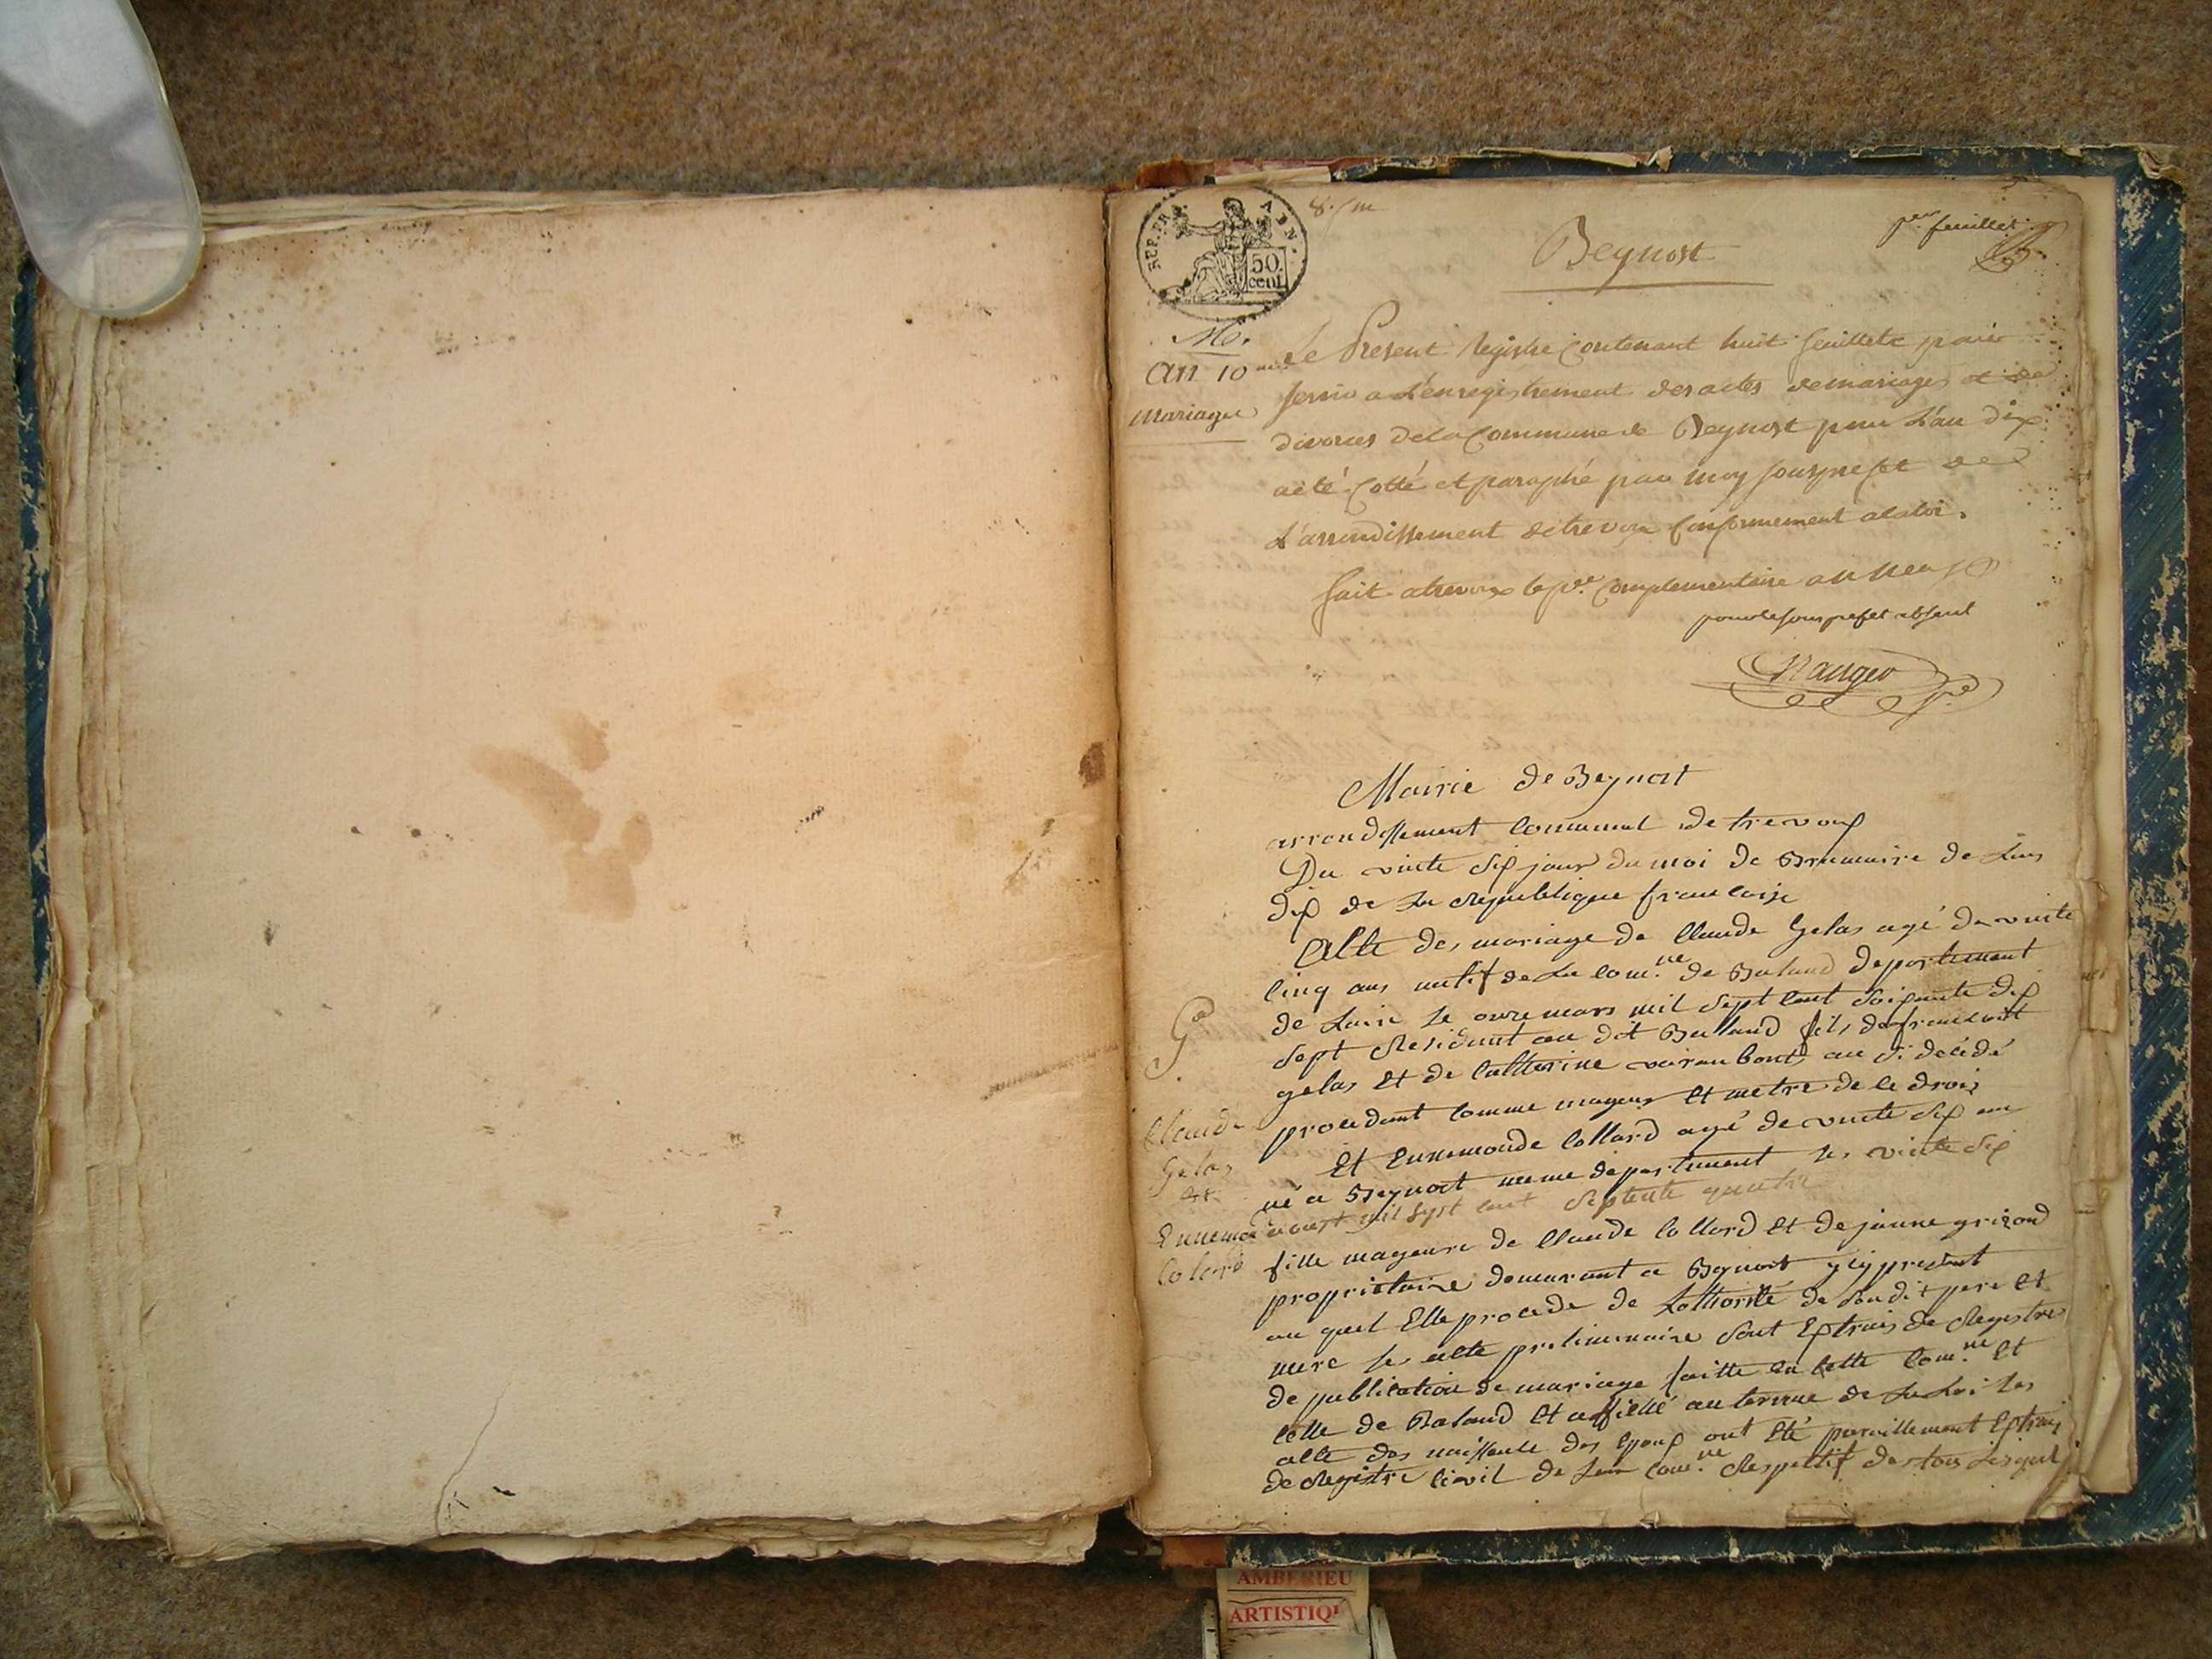 REP. FRA.
ADN.
50
cent
8.
p.er feuillet
Beynost
An 10
mariages
Le Present Registre Contenant huit feuillets pour
servir a L'enregistrement des actes de mariages et de
divorces de la Commune de Beynost pour L'an dix
a été Cotté et paraphé par moy sousprefet de
L'arrondissement de trevoux Conformement a la loi.
fait a trevoux le p.er Complementaire an neuf
pour le sousprefet absent
Mairie de Beynost
arrondissement Communal de trevoux
Du vinte six jour du moi de Brumaire de Lan
dix de La Republique francoise
Acte des mariage de Claude Gelas agé de vinte
Cinq ans natif de La Com.ne de Baland departement
de Lain le onze mars mil Sept Cent Soixante dix
Sept Residant au dit Balland fils de francoit
gelas Et de Catherine au Si décédé
procedant Comme mageur Et metre de Ce drois
Claude
Gelas
et
Ennemonde
Colard
Et Ennemonde Collard agé de vinte Six an
né a Beynost meme departement le vinte Six
aoust mil Sept Cent Septente quatre
fille mageure de Claude Collard Et de jeanne grizond
proprietaire demeurant a Beynost y cy present
au quel Elle procede de Lothorité de Son dit pere Et
mere les acte preliminaire Sont Extrais de Registre
de publication de mariage faitte en Cette Com.ne Et
Celle de Baland Et affiché au terme de La Loi Les
acte des naissance des Epoux ont Eté pareillement Extrais
de Registre Civil de Leur Com.ne Respectif des tous Lesquel
AMBERIEU
ARTISTIQ